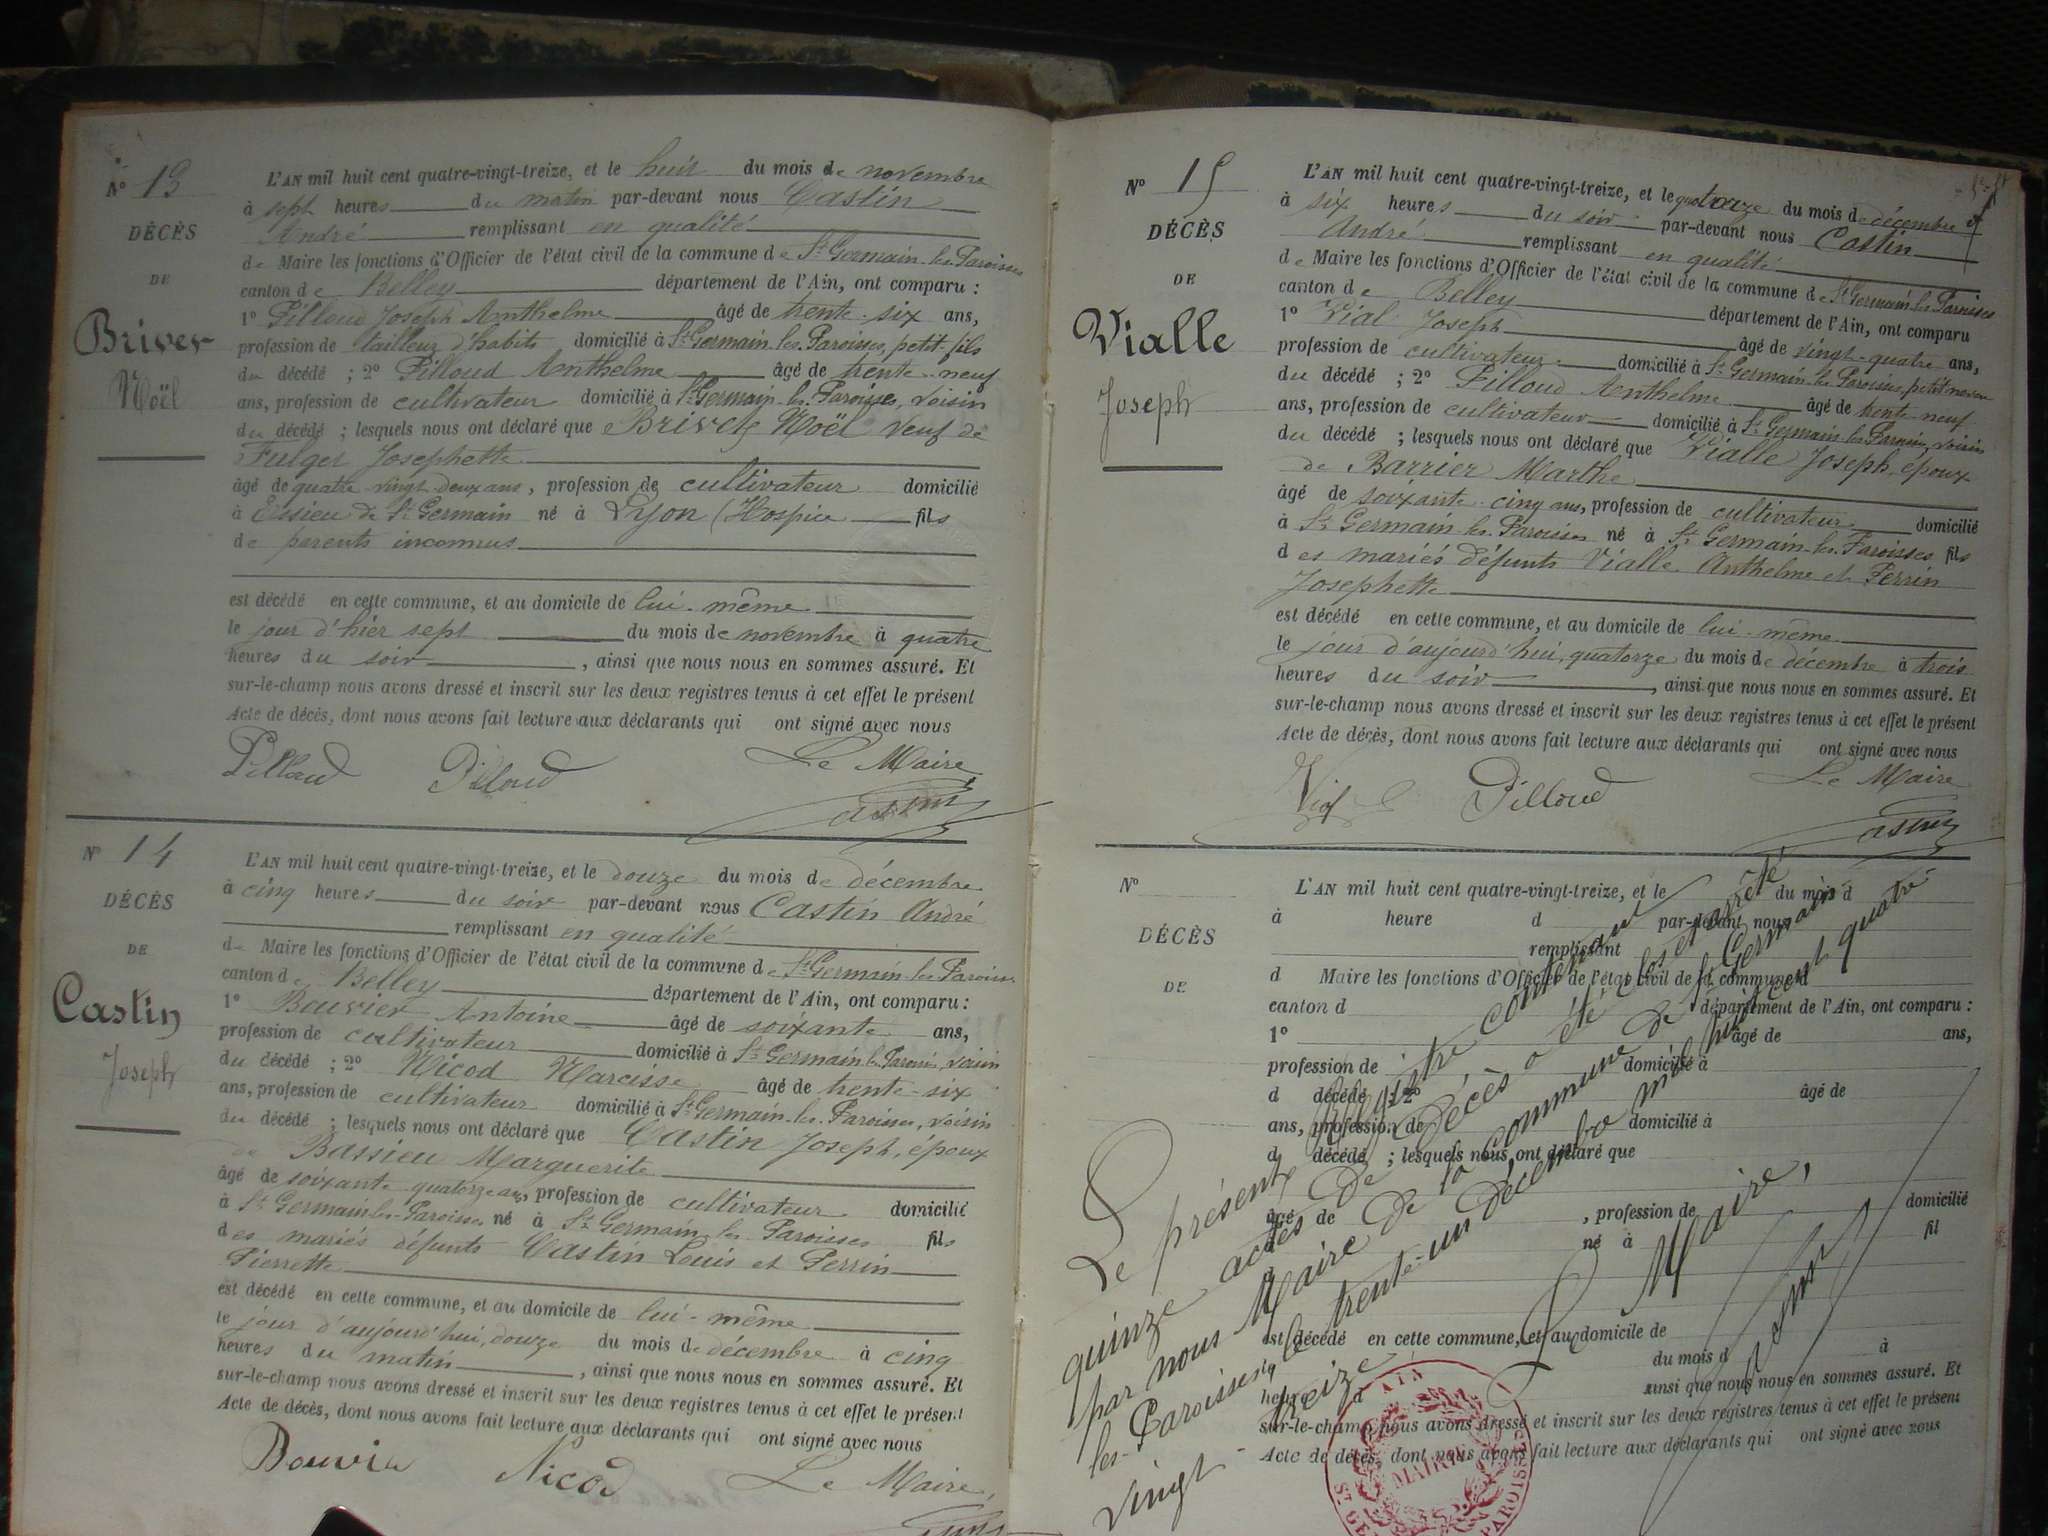 N° 13
DÉCÈS
DE
Brivet
Noël
L'AN mil huit cent quatre-vingt-treize, et le huit du mois de novembre
à sept heures du matin par-devant nous Castin
André remplissant en qualité
de Maire les fonctions d'Officier de l'état civil de la commune de St Germain-les-Paroisses
canton de Belley département de l'Ain, ont comparu :
1° Pilloud Joseph Anthelme âgé de trente-six ans,
profession de tailleur d'habits domicilié à St Germain-les-Paroisses, petit-fils
du décédé ; 2° Pilloud Anthelme âgé de trente-neuf
ans, profession de cultivateur domicilié à St Germain-les-Paroisses, voisin
du décédé ; lesquels nous ont déclaré que Brivet Noël veuf de
Fulger Josephette
âgé de quatre vingt deux ans, profession de cultivateur domicilié
à Essieu de St Germain né à Lyon (Hospice fils
de parents inconnus
est décédé en cette commune, et au domicile de lui-même
le jour d'hier sept du mois de novembre à quatre
heures du soir, ainsi que nous nous en sommes assuré. Et
sur-le-champ nous avons dressé et inscrit sur les deux registres tenus à cet effet le présent
Acte de décès, dont nous avons fait lecture aux déclarants qui ont signé avec nous
Pilloud Pilloud Le Maire
Castin
N° 14
DÉCÈS
DE
Castin
Joseph
L'AN mil huit cent quatre-vingt-treize, et le douze du mois de décembre
à cinq heures du soir par-devant nous Castin André
remplissant en qualité
de Maire les fonctions d'Officier de l'état civil de la commune de St Germain-les-Paroisses
canton de Belley département de l'Ain, ont comparu :
1° Bouvier Antoine âgé de soixante ans,
profession de cultivateur domicilié à St Germain-les-Paroisses, voisin
du décédé ; 2° Nicod Narcisse âgé de trente-six
ans, profession de cultivateur domicilié à St Germain-les-Paroisses, voisin
du décédé ; lesquels nous ont déclaré que Castin Joseph, époux
de Bassieu Marguerite
âgé de soixante-quatorze ans, profession de cultivateur domicilié
à St Germain-les-Paroisses né à St Germain-les-Paroisses fils
des mariés défunts Castin Louis et Perrin
Pierrette
est décédé en cette commune, et au domicile de lui-même
le jour d'aujourd'hui, douze du mois de décembre à cinq
heures du matin, ainsi que nous nous en sommes assuré. Et
sur-le-champ nous avons dressé et inscrit sur les deux registres tenus à cet effet le présent
Acte de décès, dont nous avons fait lecture aux déclarants qui ont signé avec nous
Bouvier Nicod Le Maire,
N° 15
DÉCÈS
DE
Vialle
Joseph
L'AN mil huit cent quatre-vingt-treize, et le quatorze du mois de décembre
à six heures du soir par-devant nous Castin
André remplissant en qualité
de Maire les fonctions d'Officier de l'état civil de la commune de St Germain-les-Paroisses
canton de Belley département de l'Ain, ont comparu
1° Vial Joseph âgé de vingt-quatre ans,
profession de cultivateur domicilié à St Germain-les-Paroisses, petit-neveu
du décédé ; 2° Pilloud Anthelme âgé de trente-neuf
ans, profession de cultivateur domicilié à St Germain-les-Paroisses, voisin
du décédé ; lesquels nous ont déclaré que Vialle Joseph, époux
de Barrier Marthe
âgé de soixante-cinq ans, profession de cultivateur domicilié
à St Germain-les-Paroisses né à St Germain-les-Paroisses fils
des mariés défunts Vialle Anthelme et Perrin
Josephette
est décédé en cette commune, et au domicile de lui-même
le jour d'aujourd'hui, quatorze du mois de décembre à trois
heures du soir, ainsi que nous nous en sommes assuré. Et
sur-le-champ nous avons dressé et inscrit sur les deux registres tenus à cet effet le présent
Acte de décès, dont nous avons fait lecture aux déclarants qui ont signé avec nous
Vial Pilloud Le Maire
Castin
N°
DÉCÈS
DE
L'AN mil huit cent quatre-vingt-treize, et le du mois d
à heure d par-devant nous
remplissant
d Maire les fonctions d'Officier de l'état civil de la commune d
canton d département de l'Ain, ont comparu :
1° âgé de ans,
profession de domicilié à
d décédé ; 2° âgé de
ans, profession de domicilié à
d décédé ; lesquels nous ont déclaré que
âgé de , profession de domicilié
né à fil
est décédé en cette commune, et au domicile de
du mois d à
heure d ainsi que nous nous en sommes assuré. Et
sur-le-champ nous avons dressé et inscrit sur les deux registres tenus à cet effet le présent
Acte de décès, dont nous avons fait lecture aux déclarants qui ont signé avec nous
Le présent Registre contenant
quinze actes de Décès a été clos et arrêté
par nous Maire de la commune de St Germain
les-Paroisses, le trente-un décembre mil huit cent quatre
vingt-treize
Le Maire,
Castin
AIN
MAIRIE
ST GERMAIN PAROISSES